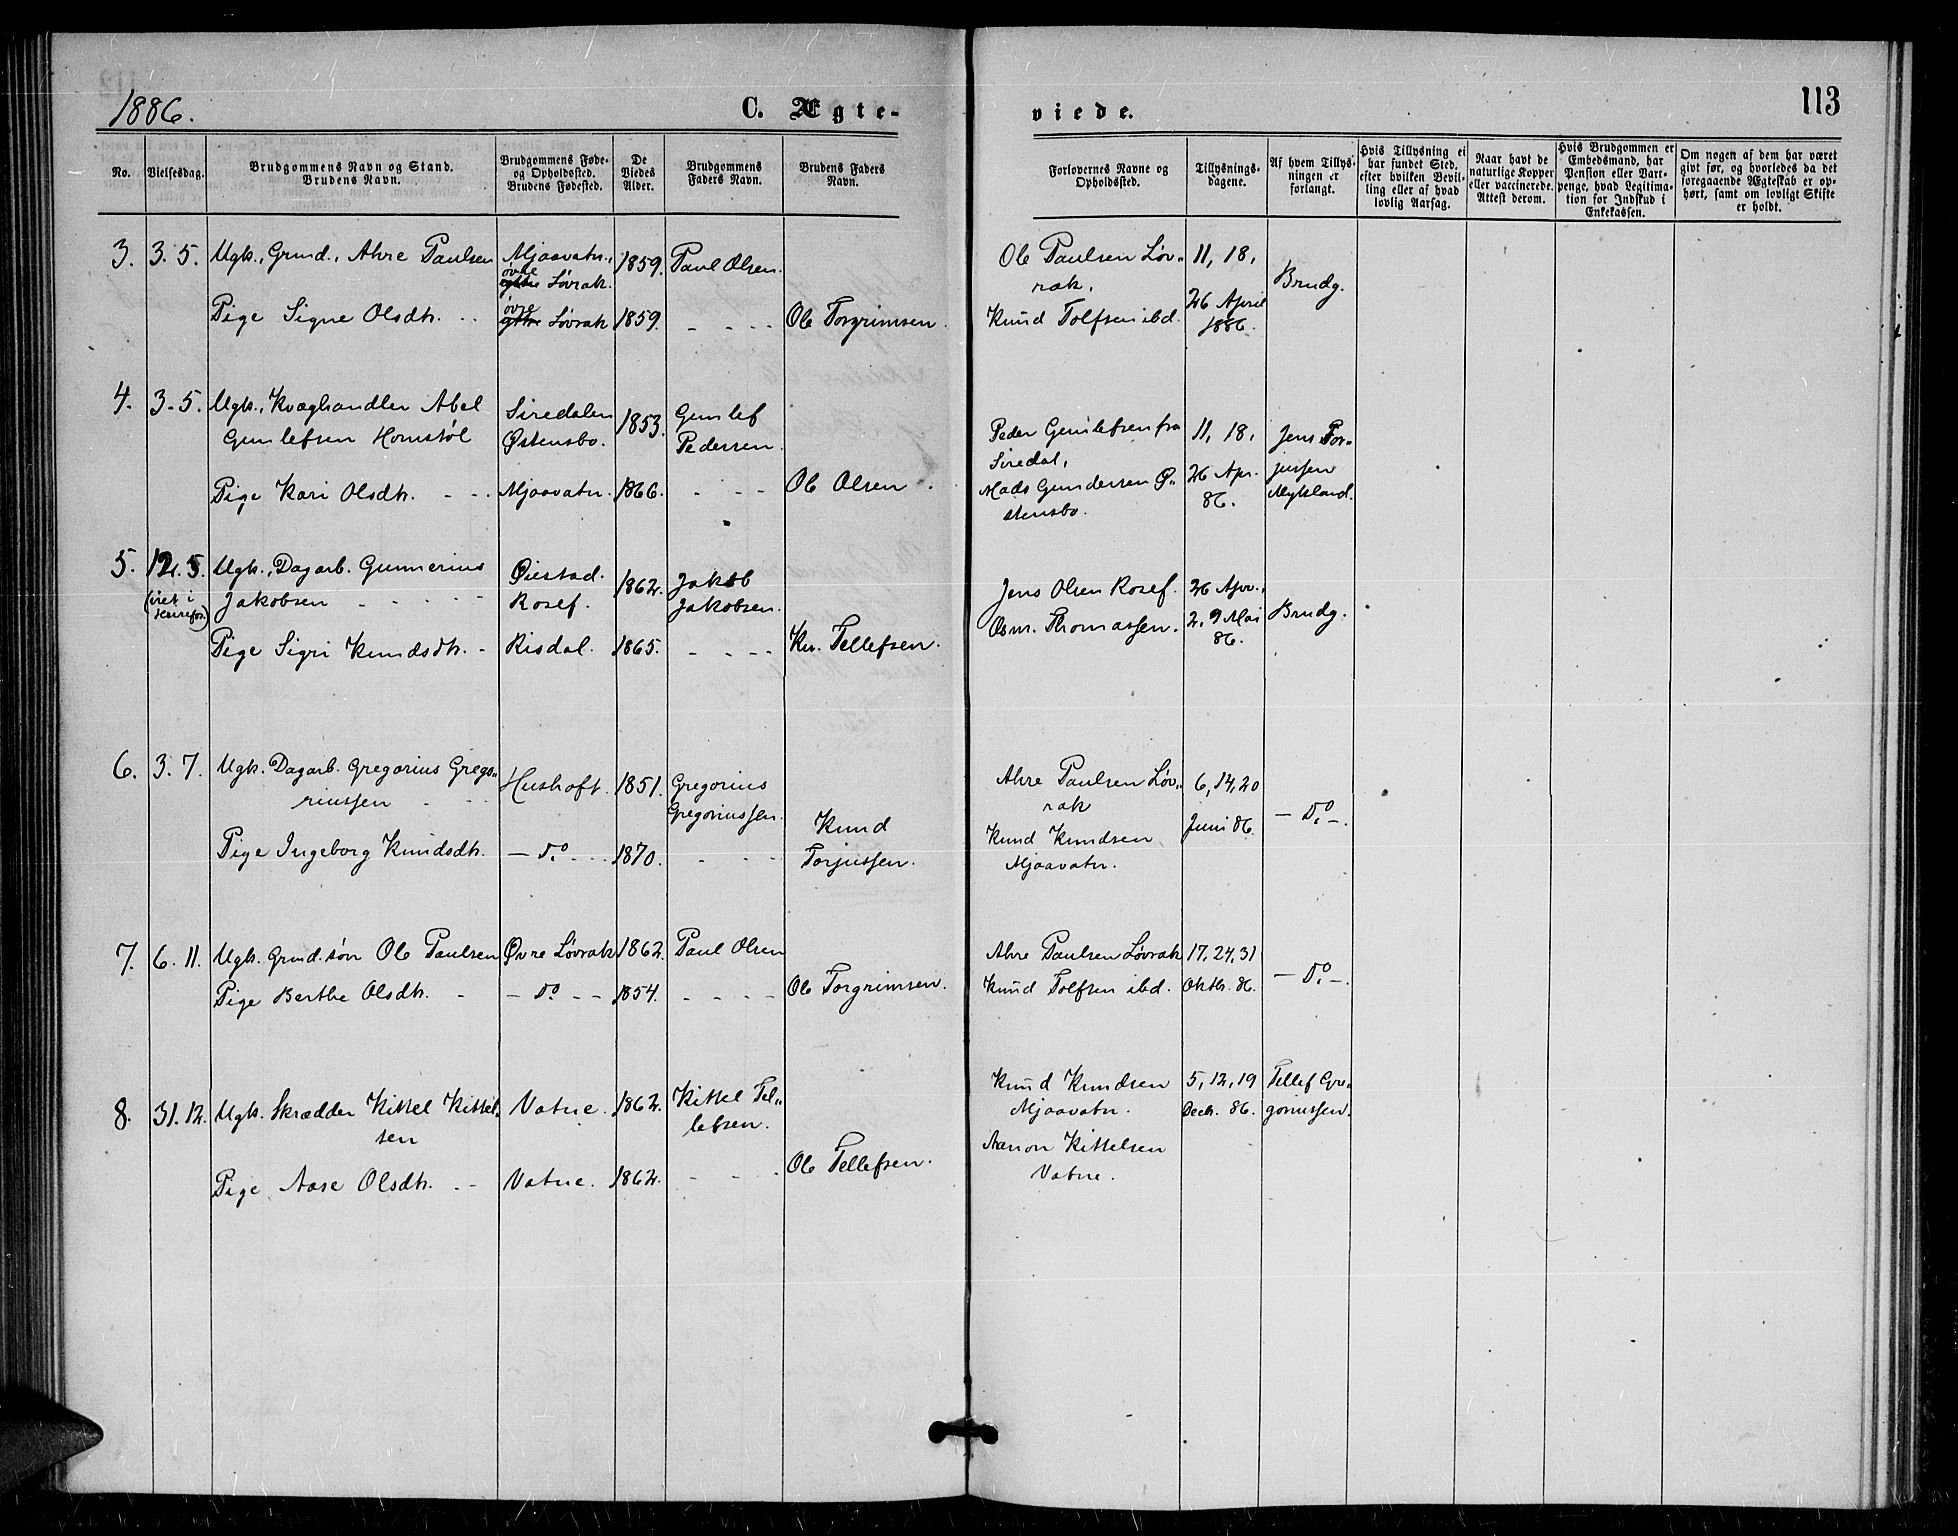 1886.
C. Ægte-
viede.
113
No.
Vielsesdag.
Brudgommens Navn og Stand.
Brudens Navn.
Brudgommens Føde-
og Opholdssted.
Brudens Fødested.
De
Viedes
Alder.
Brudgommens
Faders Navn.
Brudens Faders
Navn.
Forlovernes Navne og
Opholdssted.
Tillysnings-
dagene.
Af hvem Tillys-
ningen er
forlangt.
Hvis Tillysning ei
har fundet Sted,
efter hvilken Bevil-
ling eller af hvad
lovlig Aarsag.
Naar havt de
naturlige Kopper
eller vaccinerede.
Attest derom.
Hvis Brudgommen er
Embedsmand, har
Pension eller Vart-
penge, hvad Legitima-
tion for Indskud i
Enkekassen.
Om nogen af dem har været
givt før, og hvorledes da det
foregaaende Ægteskab er op-
hørt, samt om lovligt Skifte
er holdt.
3. 3. 5. Ugk., Grmd., Ahre Paulsen
Mjaavatn.,
øvre
Løvrak.
1859. Paul Olsen.
Pige Signe Olsdtr.
øvre
Løvrak 1859. Ole Torgrimsen.
Ole Paulsen Løv-
rak,
Knud Tolfsen ibd.
11, 18,
26 April
1886.
Brudg.
4. 3. 5. Ugk., Kvæghandler Abel
Gunlefsen Homstøl
Siredalen
Østensbo.
1853. Gunlef
Pedersen.
Pige Kari Olsdtr. Mjaavatn. 1866. Ole Olsen.
Peder Gunlefsen fra
Siredal,
Mads Gundersen Ø-
stensbo.
11, 18,
26 Apr.
86.
Jens Tor-
jussen
Mykland.
5. 12. 5. Ugk., Dagarb. Gunnerius
Jakobsen
Øiestad.
Rosef.
1862. Jakob
Jakobsen.
Pige Sigri Knudsdtr. Risdal. 1865. Kn. Tellefsen.
Jens Olsen Rosef.
Osm. Thomassen.
26 Apr.,
2, 9 Mai
86.
Brudg.
6. 3. 7. Ugk. Dagarb. Gregorius Grego-
riussen
Hushoft. 1851. Gregorius
Gregoriussen.
Pige Ingeborg Knudsdtr. – Do – 1870. Knud
Torjussen.
Ahre Paulsen Løv-
rak
Knud Knudsen
Mjaavatn.
6, 14, 20
Juni 86.
– Do –.
7. 6. 11. Ugk. Grmd.søn Ole Paulsen Øvre Løvrak 1862. Paul Olsen
Pige Berthe Olsdtr. – Do – 1854. Ole Torgrimsen.
Ahre Paulsen Løvrak
Knud Tolfsen ibd.
17, 24, 31
Oktbr. 86.
– Do –.
8. 31. 12. Ugk. Skrædder Kittel Kittel-
sen
Vatne. 1862. Kittel Tel-
lefsen.
Pige Aase Olsdtr. Vatne. 1862. Ole Tellefsen.
Knud Knudsen
Mjaavatn.
Aanon Kittelsen
Vatne.
5, 12, 19
Decbr. 86.
Tellef Gre-
goriussen.